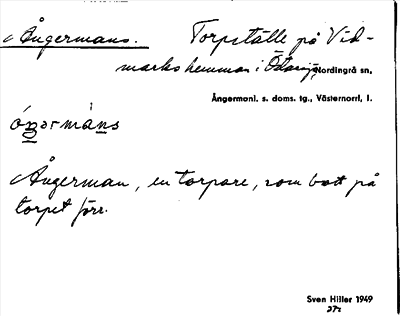 Ångermans. Torpställe på Vid-
markshemman i Nordingrå sn,
Ångermanl. s. doms. tg., Västernorrl. l.
óŋərmàns
Ångerman, en torpare, som bott på
torpet förr.
Sven Hiller 1949